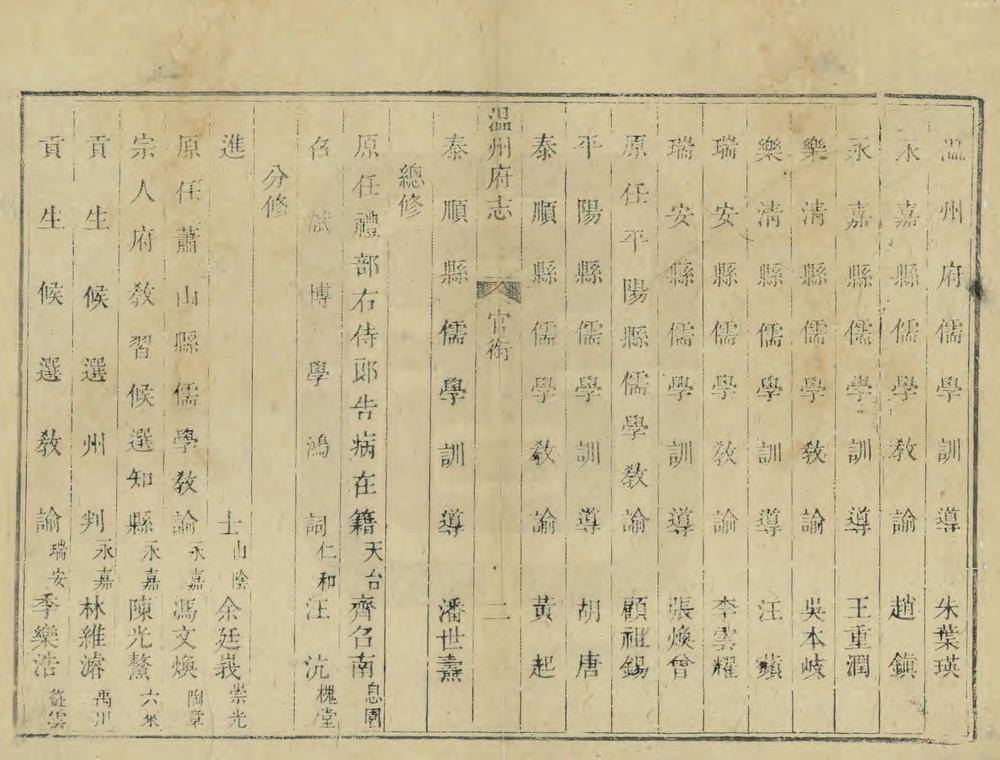 温州府儒學訓導 朱葉瑛
永嘉縣儒學教諭 趙鎮
永嘉縣儒學訓導 王重潤
樂清縣儒學教諭 吳本岐
樂清縣儒學訓導 汪蘋
瑞安縣儒學教諭 李雲耀
瑞安縣儒學訓導 張煥曾
原任平陽縣儒學教諭 顧祖錫
平陽縣儒學訓導 胡唐
泰順縣儒學教諭 黃起
温州府志 官銜 二
泰順縣儒學訓導 潘世燾
總修
原任禮部右侍郎告病在籍天台齊召南息園
召試博學鴻詞仁和汪沆槐堂
分修
進士山陰余廷峩崇光
原任蕭山縣儒學教諭永嘉馮文煥陶章
宗人府教習候選知縣永嘉陳光鰲六來
貢生候選州判永嘉林維濬禹川
貢生候選教諭瑞安季樂浩從雲